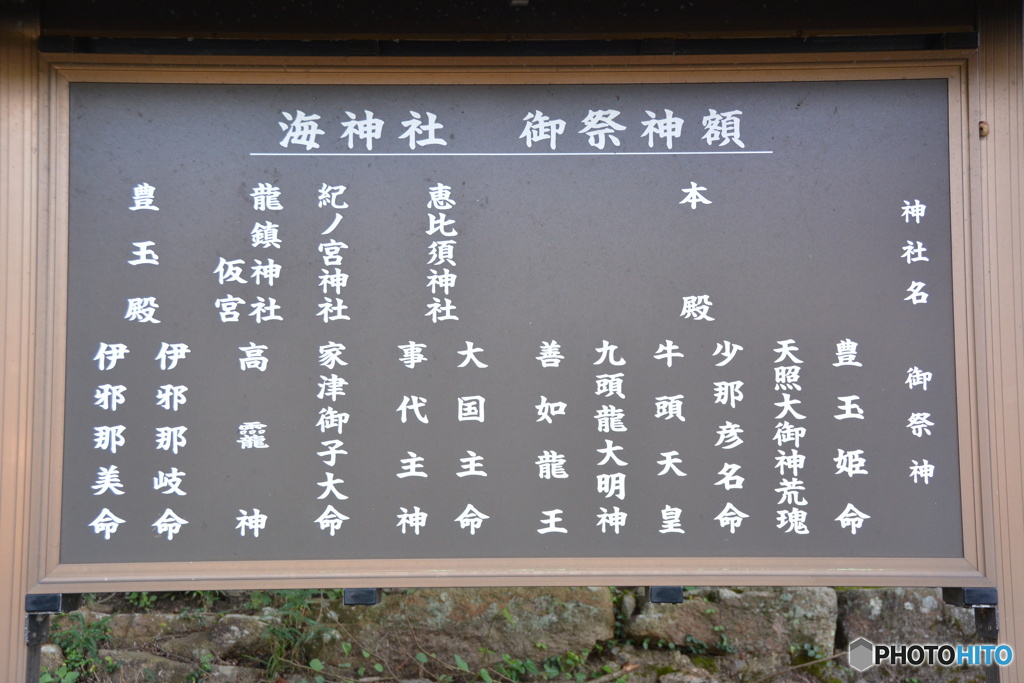 海神社 御祭神額
神社名 御祭神
本殿
豊玉姫命
天照大御神荒瑰
少那彦名命
牛頭天皇
九頭龍大明神
善如龍王
恵比須神社
大国主命
事代主神
紀ノ宮神社
家津御子大命
龍鎮神社
仮宮
高龗神
豊玉殿
伊邪那岐命
伊邪那美命
PHOTOHITO